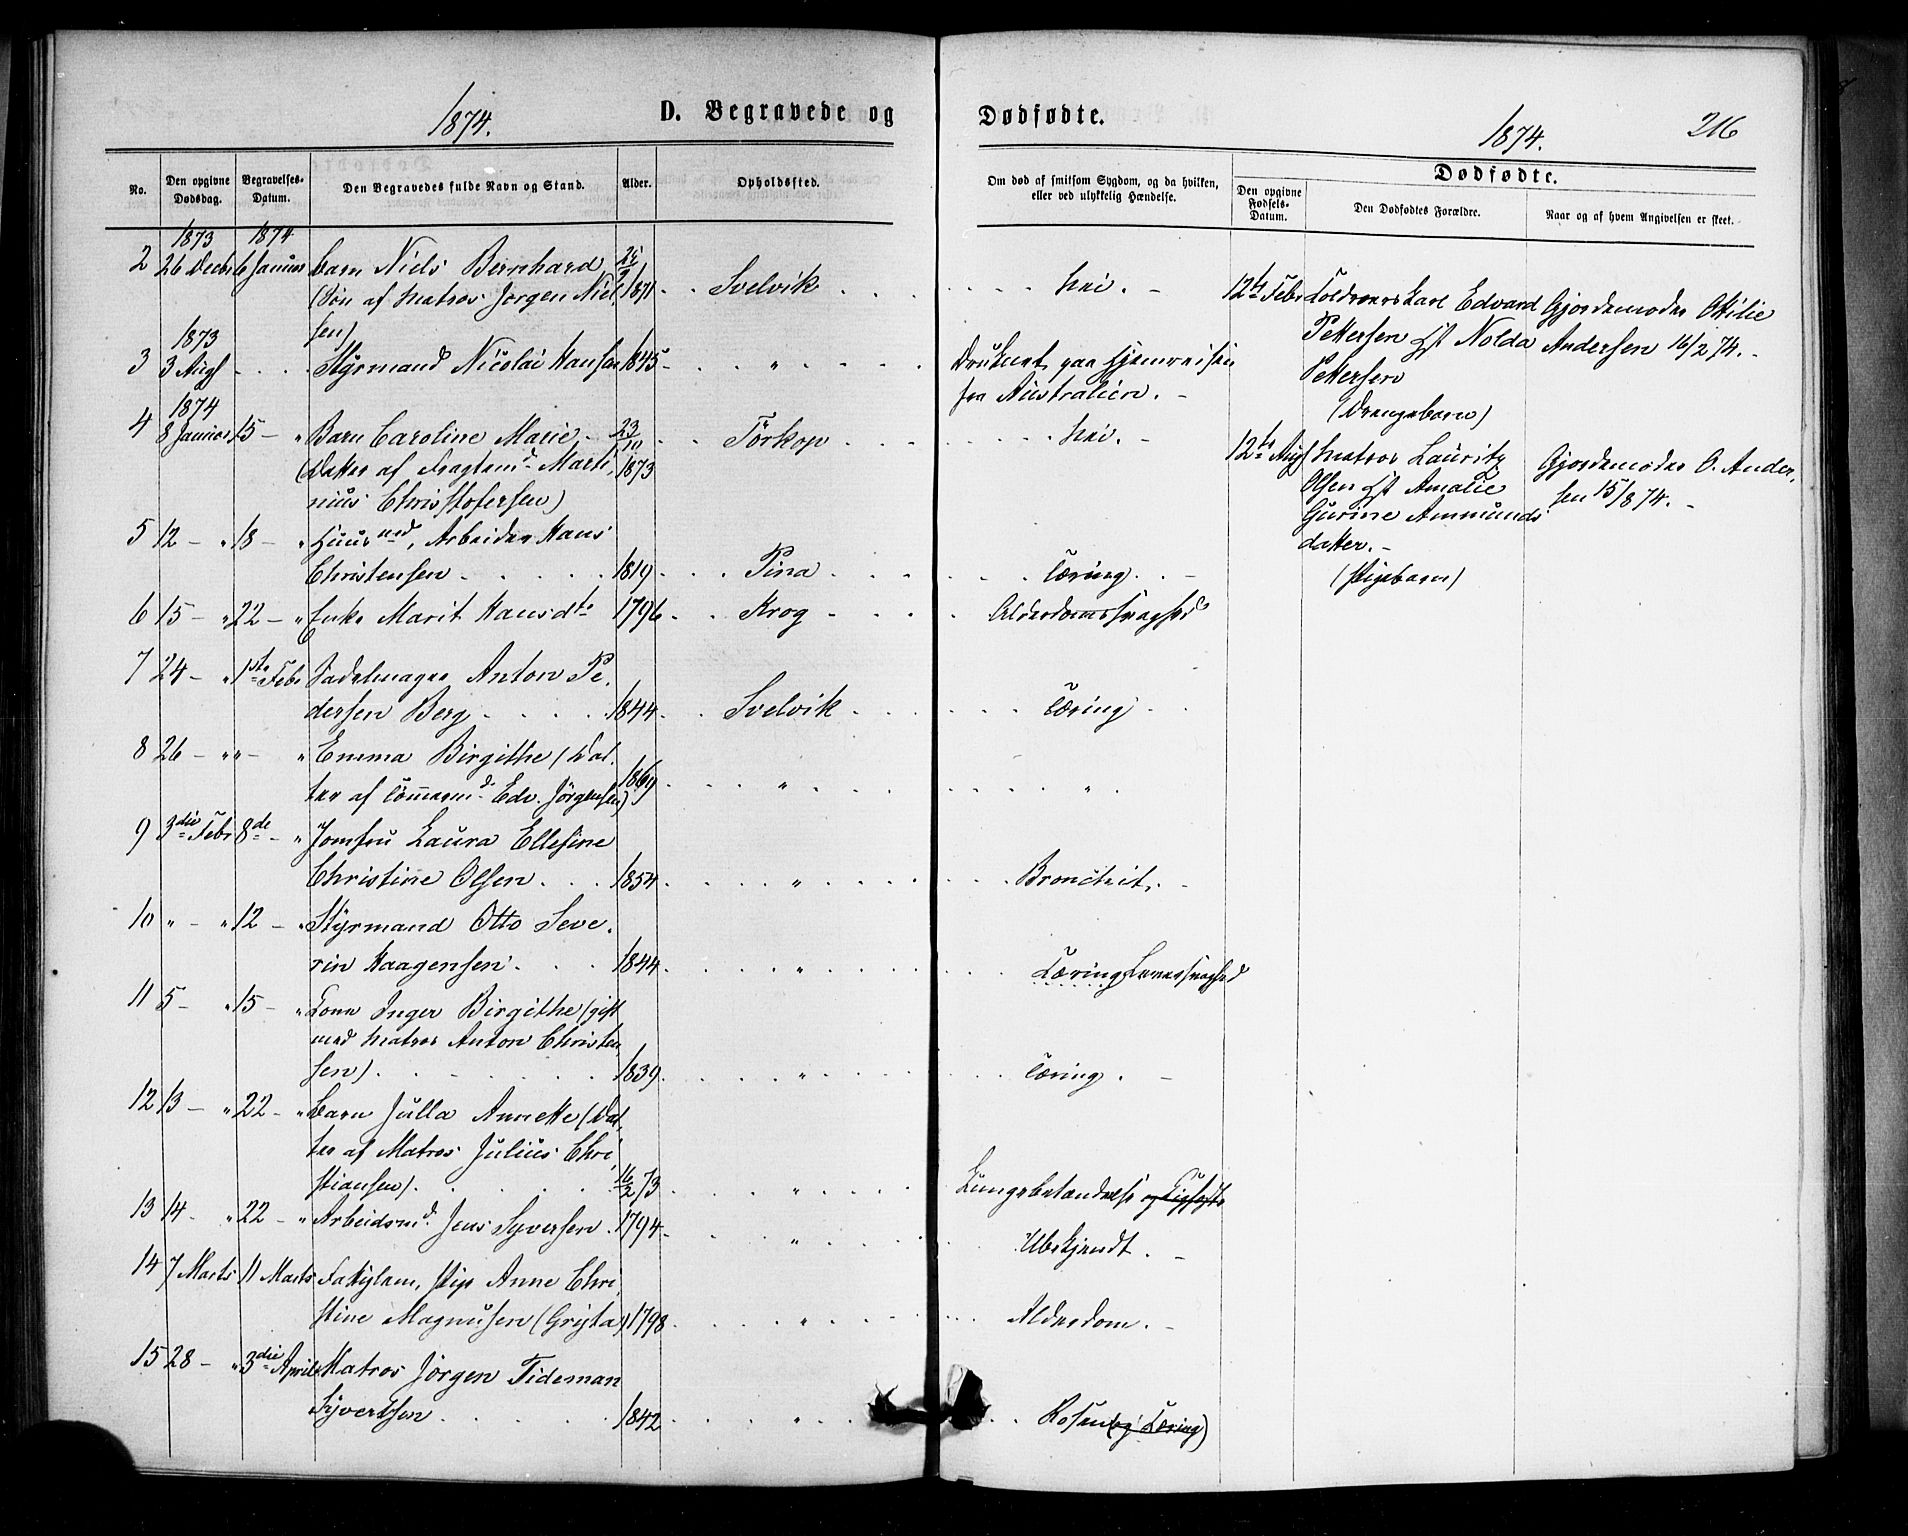 1874.
D. Begravede og
Dødfødte.
1874.
216
No.
Den opgivne Dødsdag.
Begravelses-Datum.
Den Begravedes fulde Navn og Stand.
Alder.
Opholdssted.
Om død af smitsom Sygdom, og da hvilken, eller ved ulykkelig Hændelse.
Dødfødte.
Den opgivne Fødsels-Datum.
Den Dødfødtes Forældre.
Naar og af hvem Angivelsen er skeet.
1873 1874
2 26 Decbr 6 Januar Barn Niels Bernhard 25/9
(Søn af Matros Jørgen Niel 1871 Svelvik Nei.
sen)
1873
3 3 Aug Styrmand Nicolai Hansen 1845 " Druknet paa Hjemreisen
fra Australien.
1874
4 8 Januar 15 " Barn Caroline Marie 23/11
(Datter af Fragtemd Marti 1873 Tørkop Nei.
nius Christofersen)
5 12 " 18 " Huusmd, Arbeider Hans
Christensen 1819 Pina Tæring.
6 15 " 22 " Enke Marit Hansdtr 1796 Krog Alderdomssvaghed
7 24 " 1ste Febr Sadelmager Anton Pe
dersen Berg 1844 Svelvik Tæring.
8 26 " " " Emma Birgithe (Dat
ter af Tømmermd Edv. Jörgensen) 1869 " "
9 3die Febr 8de " Jomfru Laura Ellefine
Christine Olsen 1854 " Bronchit.
10 " " 12 " Styrmand Otto Seve
rin Haagensen 1844 " Tæring
11 5 " 15 " Kone Inger Birgithe (gift
med Matros Anton Christen
sen) 1839 " Tæring.
12 13 " 22 " Barn Julla Annette (Dat
ter af Matros Julius Chri
stiansen) 16/2 73 " Lungebetændelse og
13 14 " 22 " Arbeidsmd Jens Syversen 1794 " Ubekjendt.
14 7 Marts 11 Marts Fattiglem, Pige Anne Chri
stine Magnusen (Grijta) 1798 " Alderdom.
15 28 " 3die April Matros Jörgen Tideman
Syvertsen 1842 " Rosen (og Tæring)
12te Febr Toldroerskarl Edvard
Pettersen & Hst Nolda
Pettersen
(Drengebarn)
Gjordemoder Otilie
Andersen 16/2 74.
12te Aug Matros Lauritz
Olsen & Hst Amalie
Gurine Ammunds
datter.
(Pigebarn)
Gjordemoder O. Ander
sen 15/8 74.